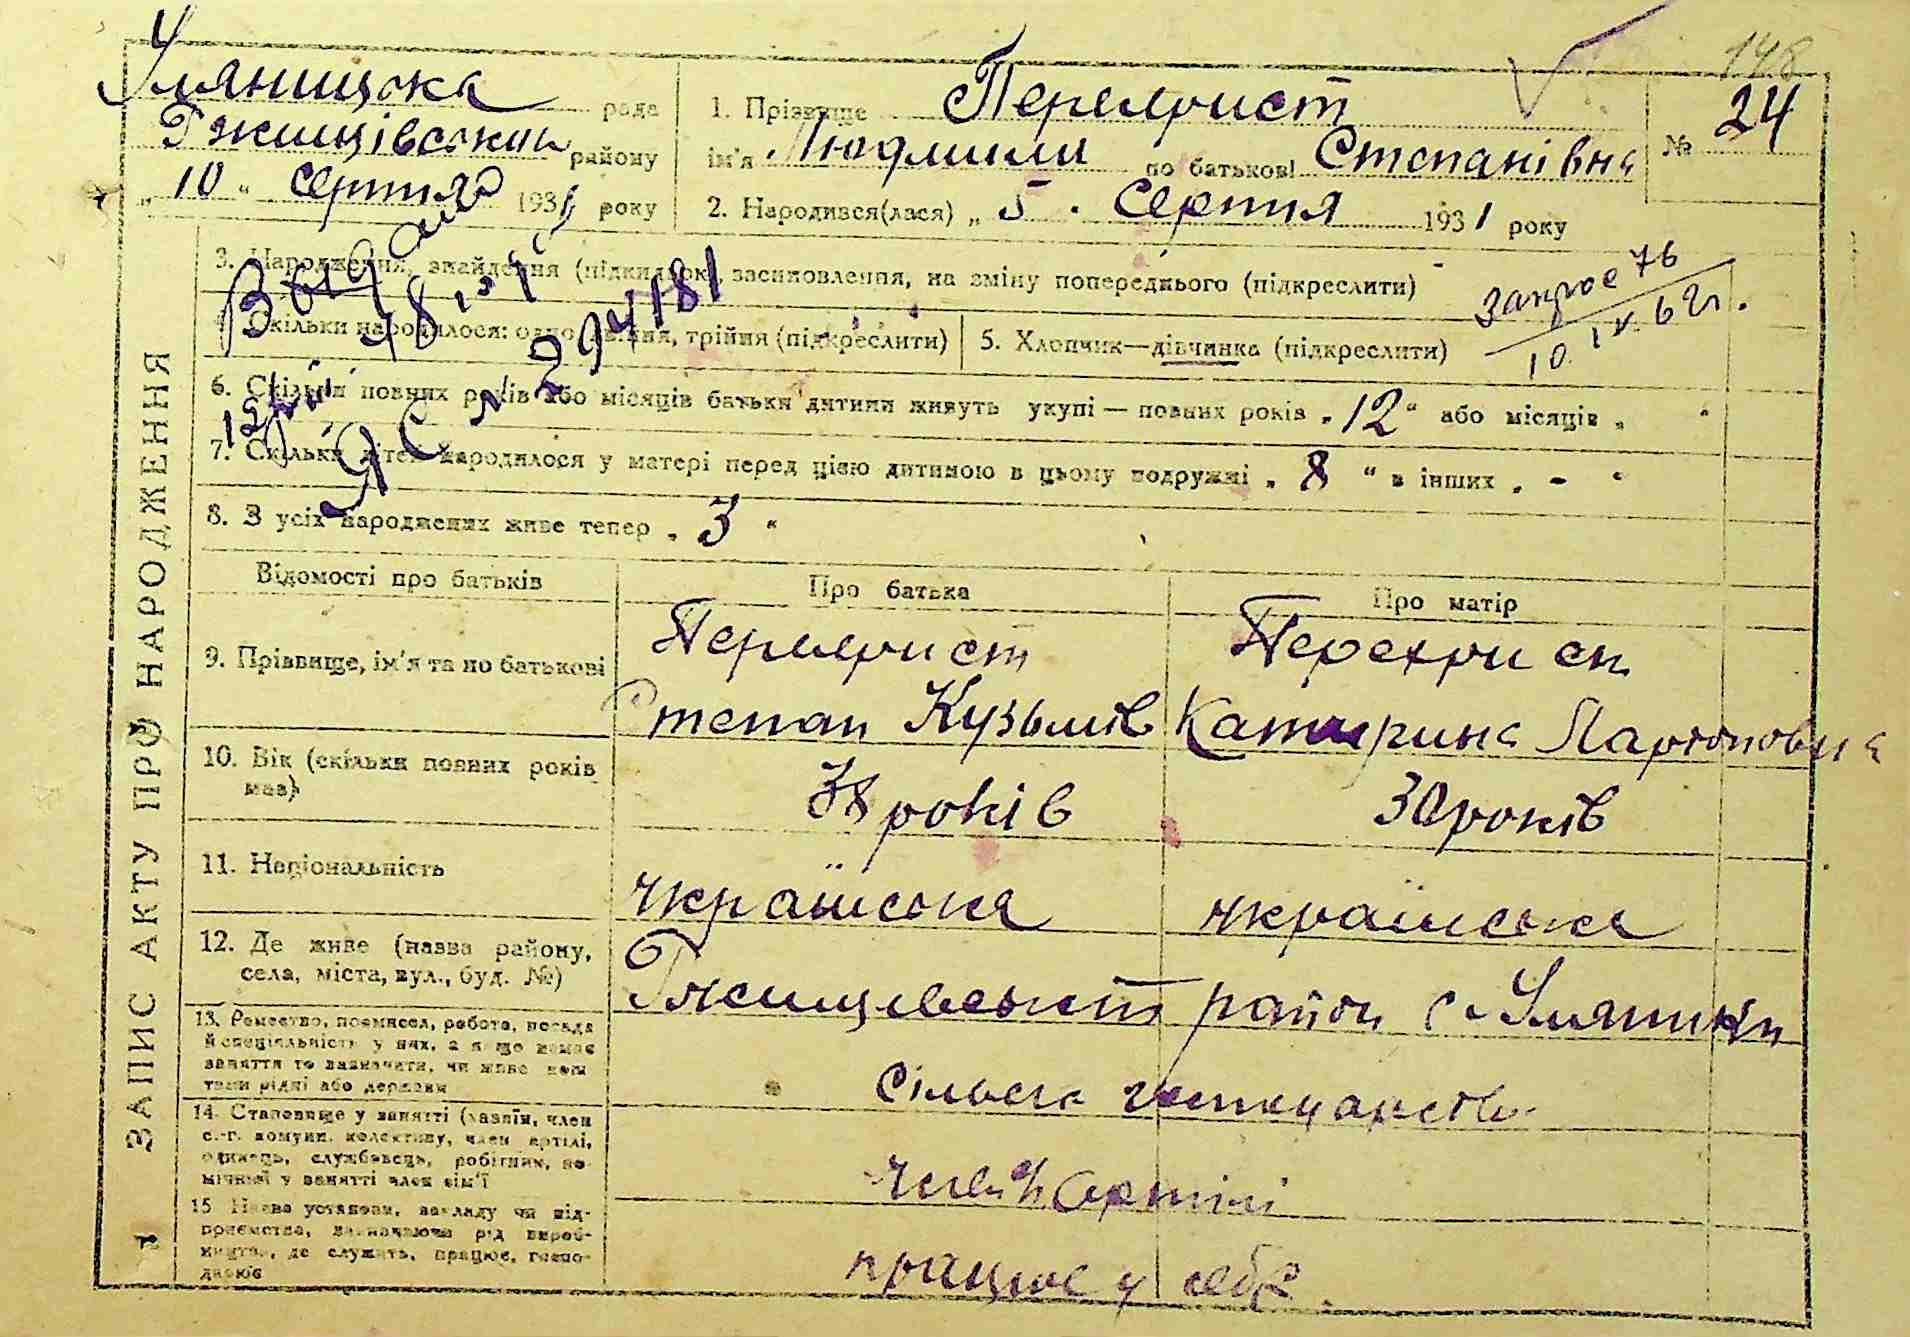 148
Уляницька рада
Ржищівський району
„10“ серпня 1931 року
1. Прізвище Перехрист
ім'я Людмила по батькові Степанівна
2. Народився(лася) „5“ серпня 1931 року
№ 24
3. Народження, знайдення (підкидьок), засиновлення, на зміну попереднього (підкреслити)
запрос 76
10.IV.62г.
4. Скільки народилося: одно, двійня, трійня (підкреслити)
5. Хлопчик—дівчинка (підкреслити)
6. Скільки повних років або місяців батьки дитини живуть укупі — повних років „12“ або місяців „ “
7. Скільки дітей народилося у матері перед цією дитиною в цьому подружжі „8“ в інших „-“
8. З усіх народжених живе тепер „3“
ЯС № 294181
ЗАПИС АКТУ ПРО НАРОДЖЕННЯ
Відомості про батьків
Про батька
Про матір
9. Прізвище, ім'я та по батькові
Перехрист
Степан Кузьмів
Перехрист
Катерина
10. Вік (скільки повних років має)
38 років
30 років
11. Національність
українська
українська
12. Де живе (назва району,
села, міста, вул., буд. №)
Ржищевський район с. Уляники
13. Ремество, промисел, робота, посада
й спеціальність у них, а якщо немає
заняття то зазначити, чи живе кош
тами рідні або держави
сільське господарство
14. Становище у занятті (хазяїн, член
с.-г. комуни, колективу, член артілі,
одинець, службовець, робітник, по-
мічний у занятті член сім'ї
член артілі
15 Назва установи, закладу чи під-
приємства, зазначаючи рід вироб-
ництва, де служить, працює, госпо-
дарює
працює у себе.